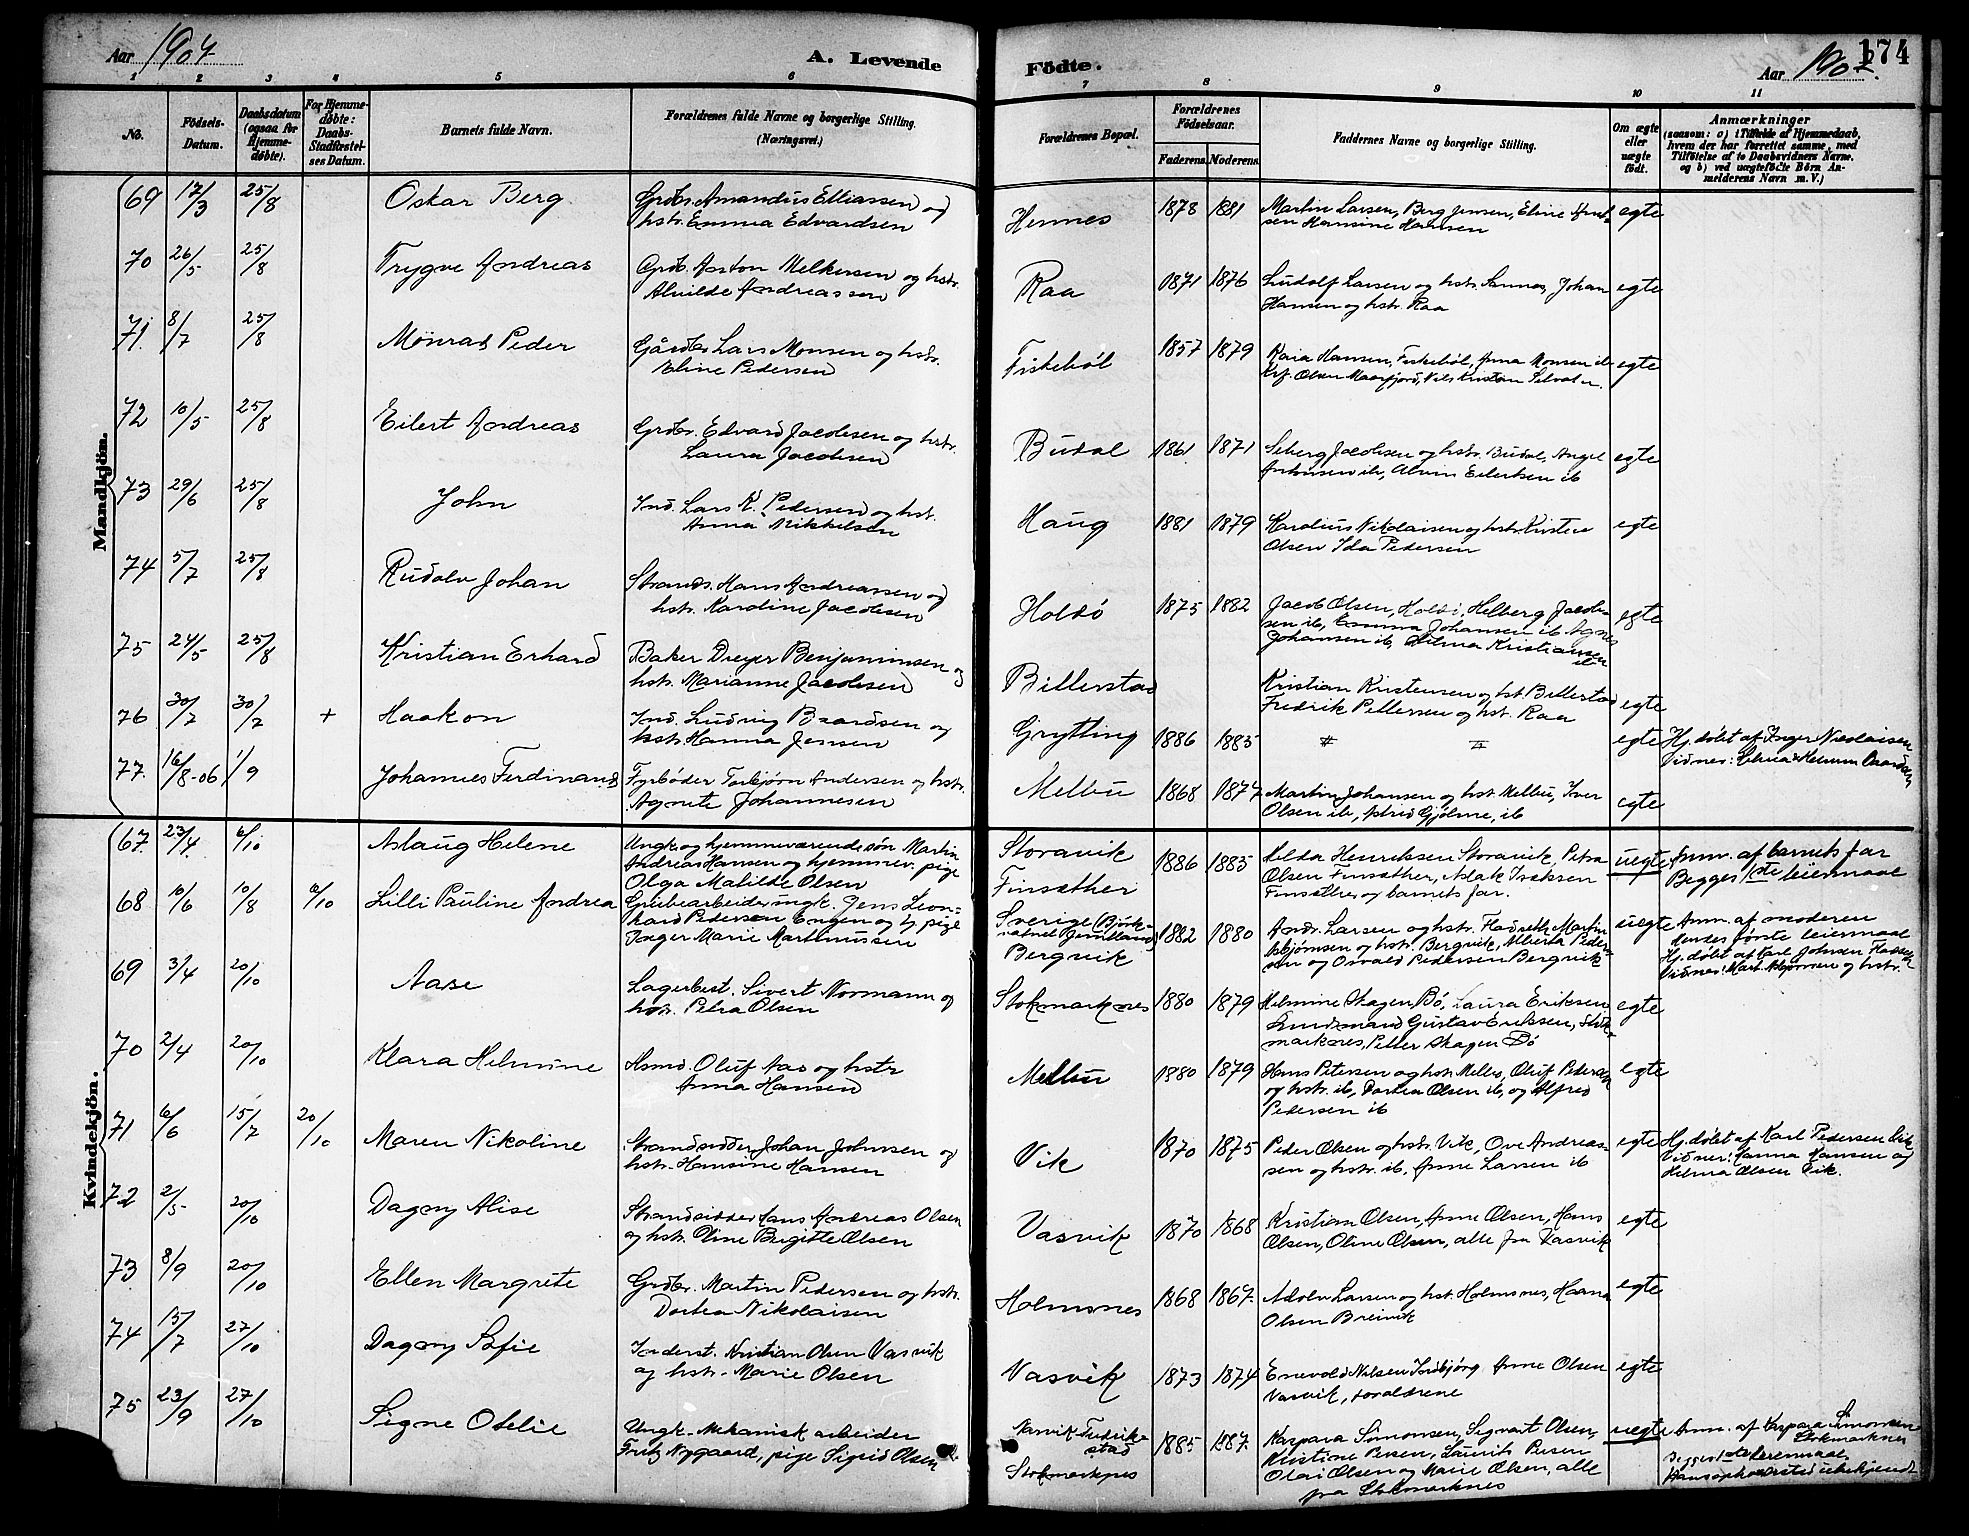 Aar 1907
A. Levende
Födte.
Aar 1907.
174
1 2 3 4 5 6 7 8 9 10 11
No.
Födsels-Datum.
Daabsdatum (ogsaa for Hjemmedøbte).
For Hjemmedøbte: Daabs-Stadfæstelses Datum.
Barnets fulde Navn.
Forældrenes fulde Navne og borgerlige Stilling. (Næringsvei.)
Forældrenes Bopæl.
Forældrenes Födselsaar.
Faderens. Moderens.
Faddernes Navne og borgerlige Stilling.
Om ægte eller uægte födt.
Anmærkninger
(saasom: a) i Tilfælde af Hjemmedaab, hvem der har forrettet samme, med Tilföielse af to Daabsvidners Navne. og b) ved uægtefödte Börn Anmelderens Navn m. V.)
Mandkjön.
69 17/3 25/8 Oskar Berg Grdbr. Amandus Elliassen og
hstr. Emma Edvardsen Hennes 1878 1881 Martin Larsen, Berg Jensen, Eline
sen Hansine Hansen egte
70 26/5 25/8 Trygve Andreas Grdb. Anton Melkersen og hstr.
Alvilde Andreassen Raa 1871 1876 Ludolf Larsen og hstr. Sannes, Johan
Hansen og hstr. Raa egte
71. 8/7 25/8 Monrad Peder Gårdbr Lars Monsen og hstr.
Eline Pedersen Fiskebøl 1857 1879 Kaia Hansen, Fiskebøl, Anna Monsen ib
Olsen Maarfjord, Nils Kristian egte
72 10/5 25/8 Eilert Andreas Grdbr. Edvard Jacobsen og hstr.
Laura Jacobsen Budal 1861 1871 Seberg Jacobsen og hstr. Budal, Angel
Antonsen ib, Alvin Eilertsen ib egte
73 29/6 25/8 John Ind. Lars K. Pedersen og hst.
Anna Mikkelsen Haug 1881 1879 Karolius Nikolaisen og hstr. Kristen
Olsen Ida Pedersen egte
74 5/7 25/8 Rudolv Johan Strands. Hans Andreassen og
hstr. Karoline Jacobsen Holdö 1875 1882 Jacob Olsen, Holdö, Helberg Jacob-
sen ib, Emma Johansen ib Agnes
Johansen ib, Helma Kristiansen
ib egte
75 24/5 25/8 Kristian Erhard Baker Dreyer Benjaminsen og
hstr. Marianne Jacobsen Billerstad Kristian Kristensen og hst. Billerstad
Fredrik Pettersen og hst. Raa egte
76 30/7 30/7 + Haakon Ind. Ludvig Baardsen og
hstr. Hanna Jensen Grytting 1886 1885 egte Hj. døbt af Inger Nicolaisen
Vidnes:
77. 16/8-06 1/9 Johannes Ferdinand Fyrbøder Torbjørn Andersen og hstr.
Agnete Johannesen Melbu 1868 1874 Martin Johansen og hst. Melbu, Iver
Olsen ib, Astrid Gjølme, ib egte
Kvindekjön.
67. 23/4. 6/10 Aslaug Helene Ungk. og hjemmeværende søn Martin
Andreas Hansen og hjemmev. pige
Olga Matilde Olsen Storavik
Finsæther 1886 1885 Hilda Henriksen Storavik, Petra
Olsen Finsæther, Aslak Isaksen
Finsæther og barnets far. uegte Anm. af barnets far
Begges 1ste leiermaal
68 10/6 10/8 6/10 Lilli Pauline Andrea Grubearbeider, ungk. Jens Leon-
hard Pedersen Engen og h. pige
Inger Marie Martinussen Sverige (Björk-
vatnet Jemtland)
Bergvik 1882 1880 Andr. Larsen og hstr. Fladseth Martin
Asbjørnsen og hstr. Bergvik, Alberta Peder-
sen og Osvald Pedersen Bergvik uegte Anm. af moderen
hendes første leiermaal
Hj. døbt af Carl Johnsen
Vidnes: Mart. Asbjørnsen og hstr.
69 3/4 20/10 Aase Lagerbest. Sivert Normann og
hstr. Petra Olsen Stokmarknes 1880 1879 Helmine Skagen Bö, Laura Eriksen
Gustav Eriksen, Stok-
marknes, Petter Skagen Bö egte
70 2/4 20/10 Klara Helmine Hsmd. Oluf Aas og hstr
Anna Hansen Melbu 1880 1879 Hans Petersen og hstr Melbo, Oluf Pedersen
og hstr. ib, Dortea Olsen ib, og Alfred
Pedersen ib egte
71 6/6 15/7 20/10 Maren Nikoline Strandsidder Johan Johnsen og
hstr. Hansine Hansen Vik 1870 1875 Peder Olsen og hstr. Vik, Ove Andreas-
sen og hstr. ib, Anne Larsen ib egte Hj. døbt af Karl Pedersen Vik
Vidner: Hanna Hansen og
Helma Olsen Vik.
72 2/5 20/10 Dagny Alise Strandsidder Hans Andreas Olsen
og hstr. Oline Birgitte Olsen Vasvik 1870 1868 Kristian Olsen, Anne Olsen, Hans
Olsen, Oline Olsen, alle fra Vasvik egte
73 8/9 20/10 Ellen Margrete Grdbr. Martin Pedersen og hstr.
Dortea Nikolaisen Holmsnes 1868 1867. Adolv Larsen og hst. Holmsnes, Hanna
Olsen Breivik egte
74 15/7 27/10 Dagny Sofie Inderst. Kristian Olsen Vasvik
og hstr. Marie Olsen Vasvik 1873 1874 Enevold Nilsen Indbjörg Anne Olsen
Vasvik, forældrene egte
75 23/9 27/10 Signe Otelie Ungk. Mekanisk arbeider
Fritz Nygaard, pige Sigrid Olsen Narvik Fredrik-
stad
Stokmarknes 1885 1887. Kaspara Simonsen, Sigvart Olsen,
Kristine Persen, Laurits Persen
Olai Olsen og Marie Olsen, alle
fra Stokmarknes uegte Anm. af Kaspara Simonsen
Stokmarknes
Begges 1ste leiermaal
Hans opholdssted ubekjendt